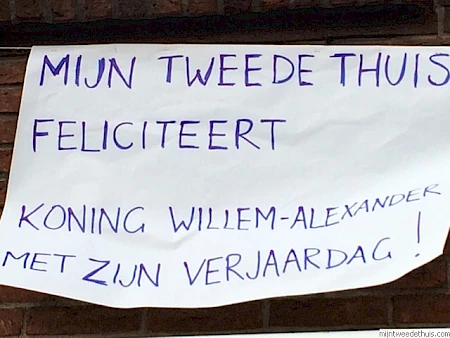 MIJN TWEEDE THUIS
FELICITEERT
KONING WILLEM-ALEXANDER
MET ZIJN VERJAARDAG!
mijntweedethuis.com